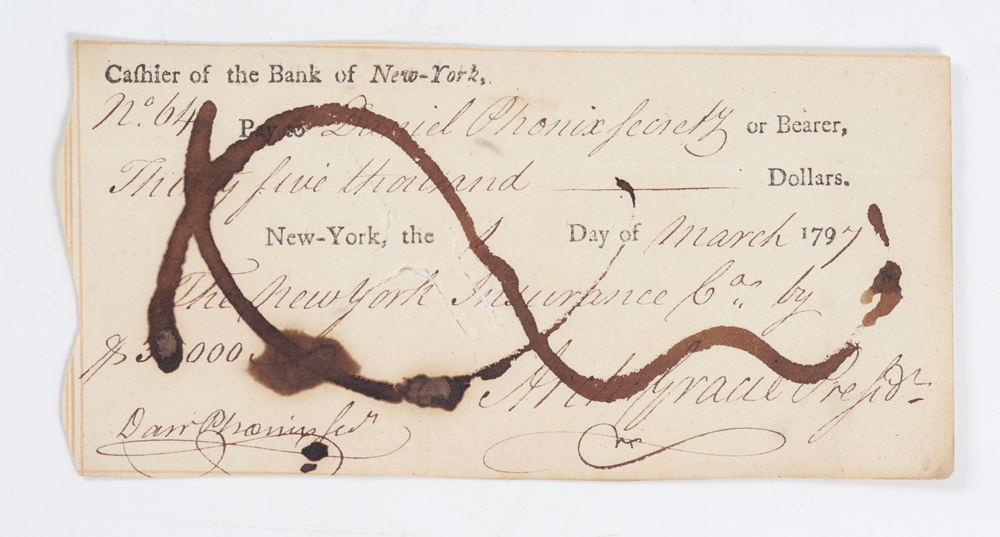 Caſhier of the Bank of New-York,
No. 64 Pay to Daniel Phonix Secrety or Bearer,
Thirty five thousand Dollars.
New-York, the 1 Day of March 1797
The New York Insurance Coas by
$ 35,000 Archd Gracie Presidt
Danl Phœnix Secy